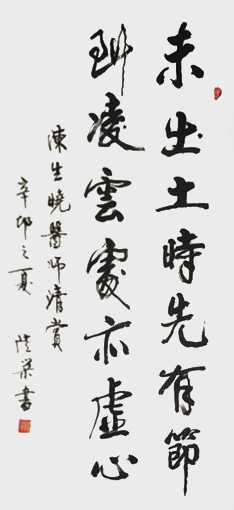 未出土時先有節
到凌雲處亦虛心
陳生曉醫師清賞
辛卯之夏 陸榮書